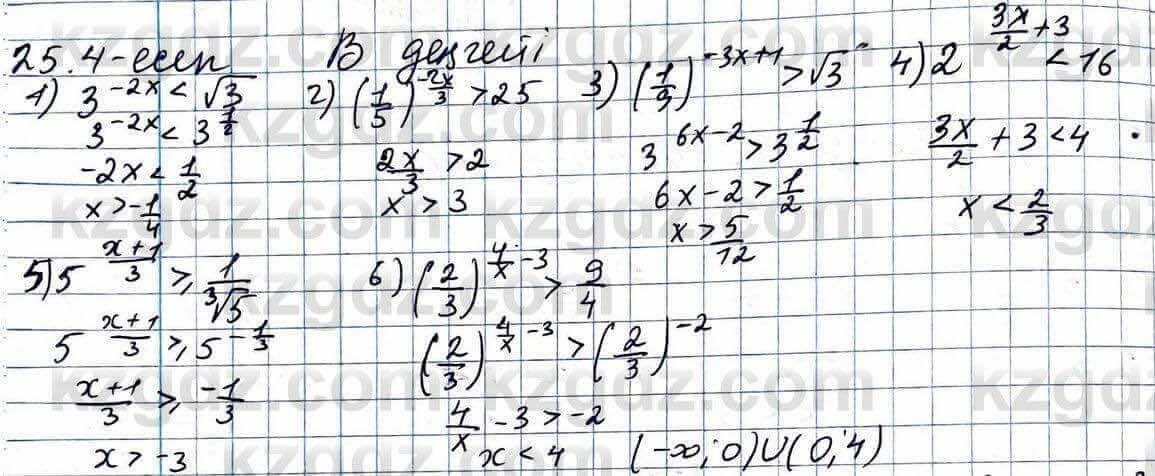 25.4-есеп В деңгейі
1) 3^{-2x} < √3
3^{-2x} < 3^{1/2}
-2x < 1/2
x > -1/4
2) (1/5)^{-2x/3} > 25
2x/3 > 2
x > 3
3) (1/9)^{-3x+1} > √3
3^{6x-2} > 3^{1/2}
6x-2 > 1/2
x > 5/12
4) 2^{3x/2+3} < 16
3x/2 + 3 < 4
x < 2/3
5) 5^{(x+1)/3} ⩾ 1/∛5
5^{(x+1)/3} ⩾ 5^{-1/3}
(x+1)/3 ⩾ -1/3
x > -3
6) (2/3)^{4/x-3} > 9/4
(2/3)^{4/x-3} > (2/3)^{-2}
4/x - 3 > -2
x < 4 (-∞; 0)∪(0; 4)
kzgdz.com